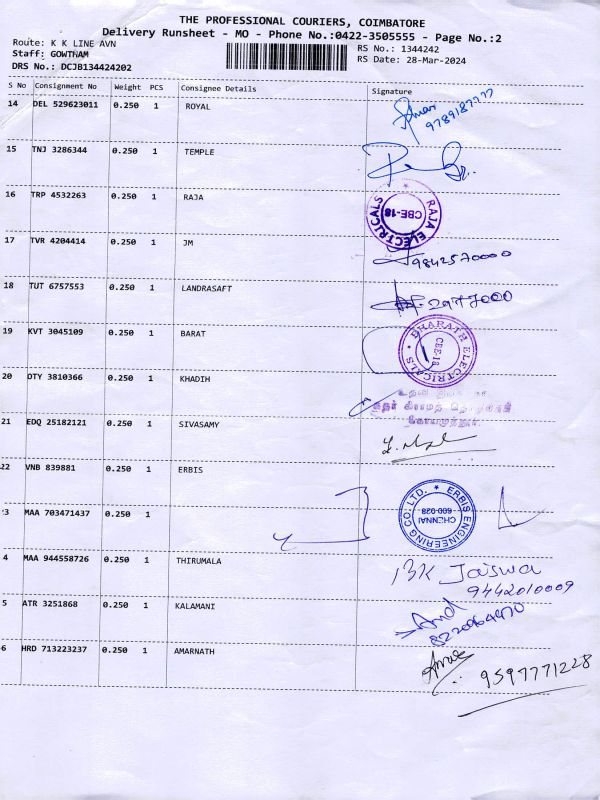 THE PROFESSIONAL COURIERS, COIMBATORE
Delivery Runsheet - MO - Phone No.:0422-3505555 - Page No.:2
Route: K K LINE AVN
Staff: GOWTHAM
DRS No.: DCJB134424202
RS No.: 1344242
RS Date: 28-Mar-2024
S No Consignment No Weight PCS Consignee Details Signature
14 DEL 529623011 0.250 1 ROYAL
15 TNJ 3286344 0.250 1 TEMPLE
16 TRP 4532263 0.250 1 RAJA
RAJA ELECTRICALS
CBE-18
17 TVR 4204414 0.250 1 JM 9842570000
18 TUT 6757553 0.250 1 LANDRASAFT
19 KVT 3045109 0.250 1 BARAT
BHARATH ELECTRICALS
CBE-18
20 OTY 3810366 0.250 1 KHADIH
21 EDQ 25182121 0.250 1 SIVASAMY
22 VNB 839881 0.250 1 ERBIS
ERBIS ENGINEERING CO. LTD.
CHENNAI
600-028
23 MAA 703471437 0.250 1
4 MAA 944558726 0.250 1 THIRUMALA
9442010009
5 ATR 3251868 0.250 1 KALAMANI
6 HRD 713223237 0.250 1 AMARNATH
9597771228